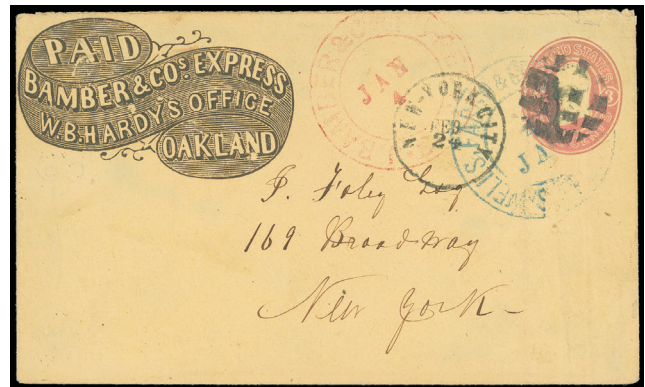 PAID
BAMBER & COS. EXPRESS
W.B. HARDY'S OFFICE
OAKLAND
BAMBER & CO
JAN
NEW-YORK-CITY
FEB
24
WELLS FA
JA
UNITED STATES
J. Foley Esq
169 Broadway
New York